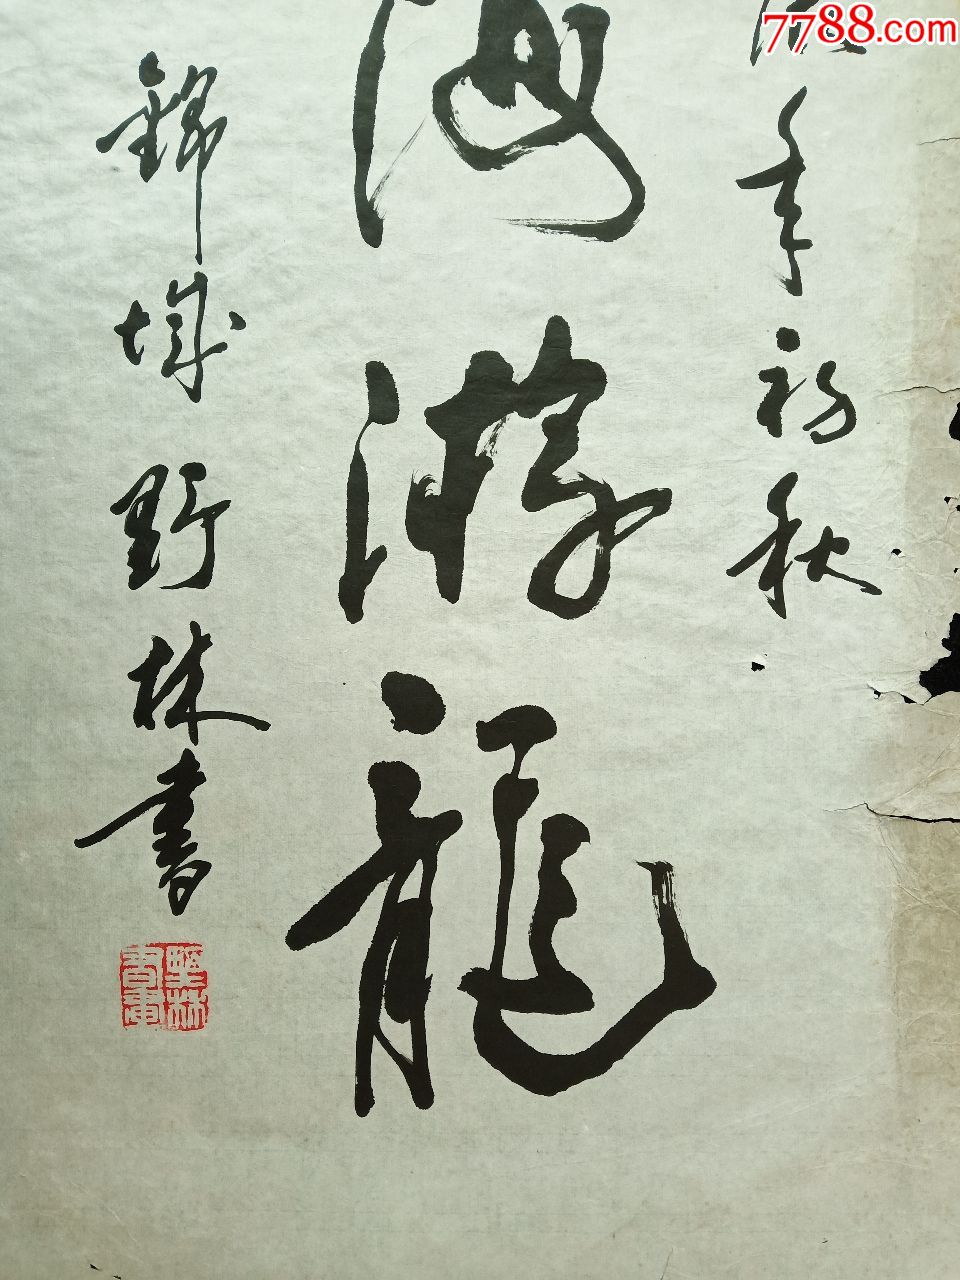 7788.com
年初秋
海游龍
錦城野林書
野林書画